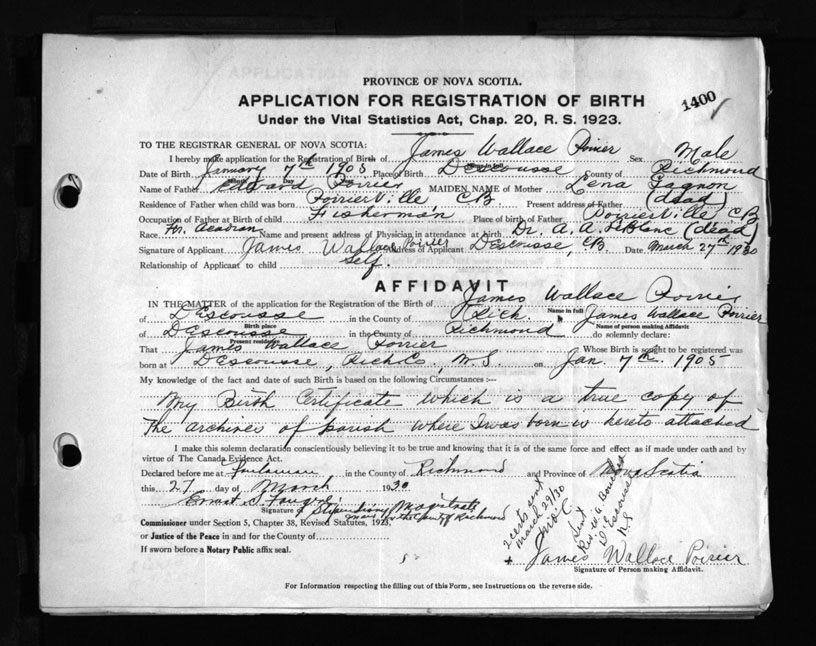 PROVINCE OF NOVA SCOTIA.
1400
APPLICATION FOR REGISTRATION OF BIRTH
Under the Vital Statistics Act, Chap. 20, R. S. 1923.
TO THE REGISTRAR GENERAL OF NOVA SCOTIA:
I hereby make application for the Registration of Birth of James Wallace Poirier Sex Male
Date of Birth January 7th 1905 Place of Birth Descousse County of Richmond
Name of Father Edward Poirier MAIDEN NAME of Mother Lena Gagnon
Residence of Father when child was born Poirrierville, CB Present address of Father (dead)
Occupation of Father at Birth of child Fisherman Place of birth of Father Poirrierville, CB
Race Fr. Acadian Name and present address of Physician in attendance at birth Dr. A. A. LeBlanc (dead)
Signature of Applicant James Wallace Poirier Address of Applicant Descousse, CB. Date March 27th 1930
Relationship of Applicant to child self.
AFFIDAVIT
IN THE MATTER of the application for the Registration of the Birth of James Wallace Poirier
Name in full
of Descousse in the County of Rich. James Wallace Poirier
Birth place Name of person making Affidavit
of Descousse in the County of Richmond do solemnly declare:
Present residence
That James Wallace Poirier Whose Birth is sought to be registered was
born at Descousse, Rich Co, N.S. on Jan. 7th 1905
My knowledge of the fact and date of such Birth is based on the following Circumstances :—
My Birth Certificate which is a true copy of
the archives of parish where I was born is hereto attached
I make this solemn declaration conscientiously believing it to be true and knowing that it is of the same force and effect as if made under oath and by
virtue of The Canada Evidence Act.
Declared before me at in the County of Richmond and Province of Nova Scotia
this 27 day of March 1930
Ernest
Signature of Stipendiary Magistrate
in the County of Richmond
Commissioner under Section 5, Chapter 38, Revised Statutes, 1923,
or Justice of the Peace in and for the County of
If sworn before a Notary Public affix seal.
2 certs sent
March 29/30
Sent
Descousse
NS
+ James Wallace Poirier
Signature of Person making Affidavit.
For Information respecting the filling out of this Form, see Instructions on the reverse side.